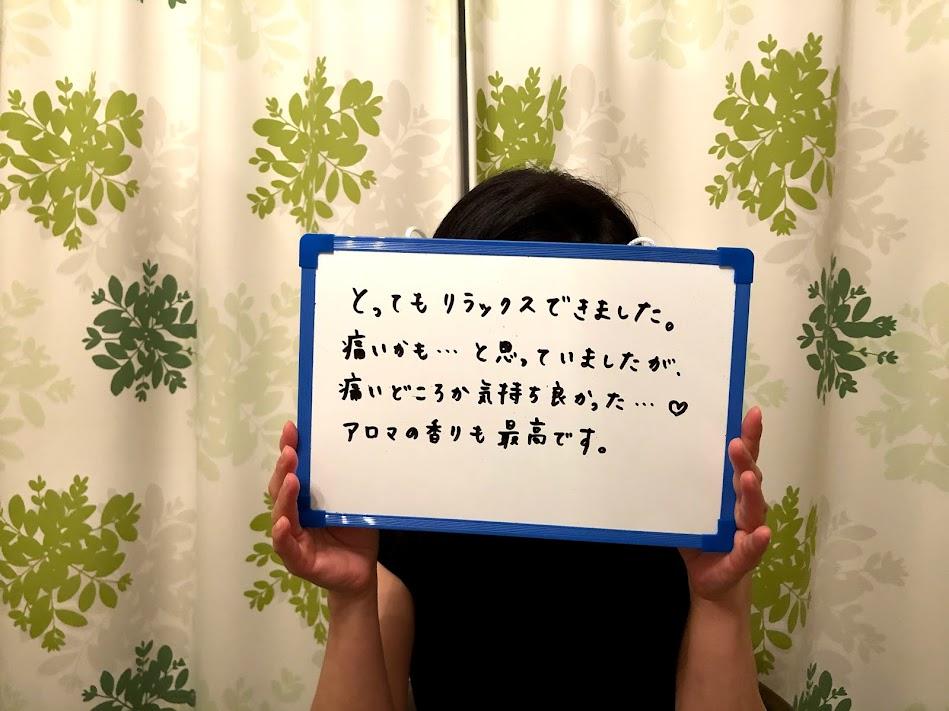 とってもリラックスできました。
痛いかも…と思っていましたが、
痛いどころか気持ち良かった…♡
アロマの香りも最高です。